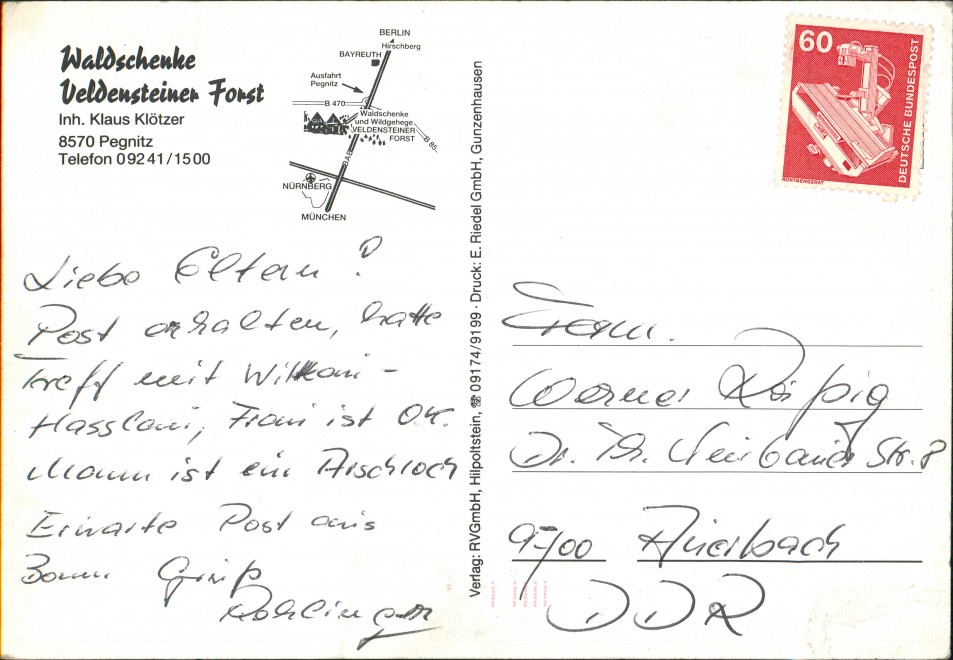 Waldschenke
Veldensteiner Forst
Inh. Klaus Klötzer
8570 Pegnitz
Telefon 0 92 41 / 15 00
BERLIN
Hirschberg
BAYREUTH
Ausfahrt
Pegnitz
B 470
Waldschenke
und Wildgehege
VELDENSTEINER
FORST
B 85
BAB
NÜRNBERG
MÜNCHEN
60
DEUTSCHE BUNDESPOST
RÖNTGENGERÄT
Verlag: RVGmbH, Hilpoltstein, ☎ 09174/9199 · Druck: E. Riedel GmbH, Gunzenhausen
Liebe Eltern!
Post erhalten, hatte
Treff mit
Frau ist O.K.
Mann ist ein Arschloch
Erwarte Post aus
Bonn Gruß
Fam.
Werner
Dr. Str. 8
9700 Auerbach
DDR